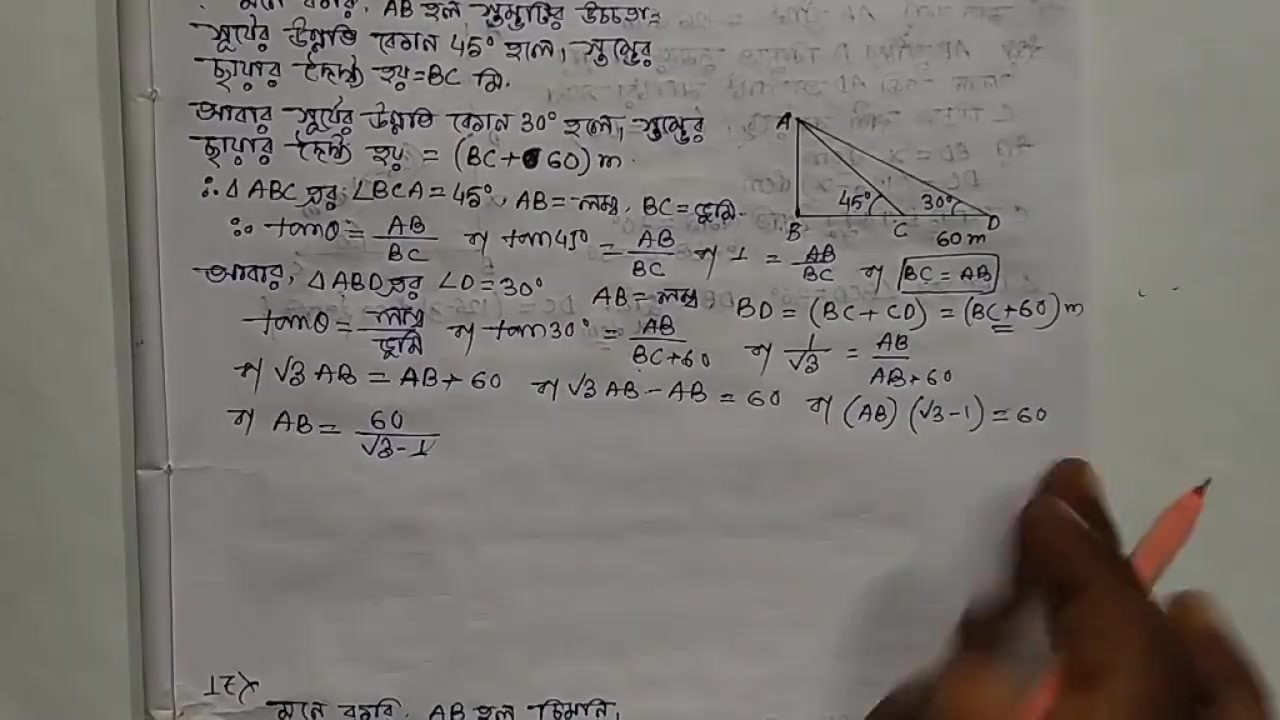 মনে করি, AB হল স্তম্ভটির উচ্চতা
সূর্যের উন্নতি কোন 45° হলে, স্তম্ভের
ছায়ার দৈর্ঘ্য হয় = BC মি.
আবার সূর্যের উন্নতি কোন 30° হলে, স্তম্ভের
ছায়ার দৈর্ঘ্য হয় = (BC+60) m.
∴ Δ ABC এর ∠BCA = 45°, AB = লম্ব, BC = ভূমি.
∴ tanθ = AB/BC বা tan45° = AB/BC বা 1 = AB/BC বা BC = AB
আবার, Δ ABD এর ∠D = 30° AB = লম্ব, BD = (BC + CD) = (BC+60) m
tanθ = লম্ব/ভূমি বা tan30° = AB/BC+60 বা 1/√3 = AB/AB+60
বা √3 AB = AB + 60 বা √3 AB - AB = 60 বা (AB) (√3-1) = 60
বা AB = 60/√3-1
A
45° 30°
B C D
60 m
মনে করি, AB হল চিমনি,